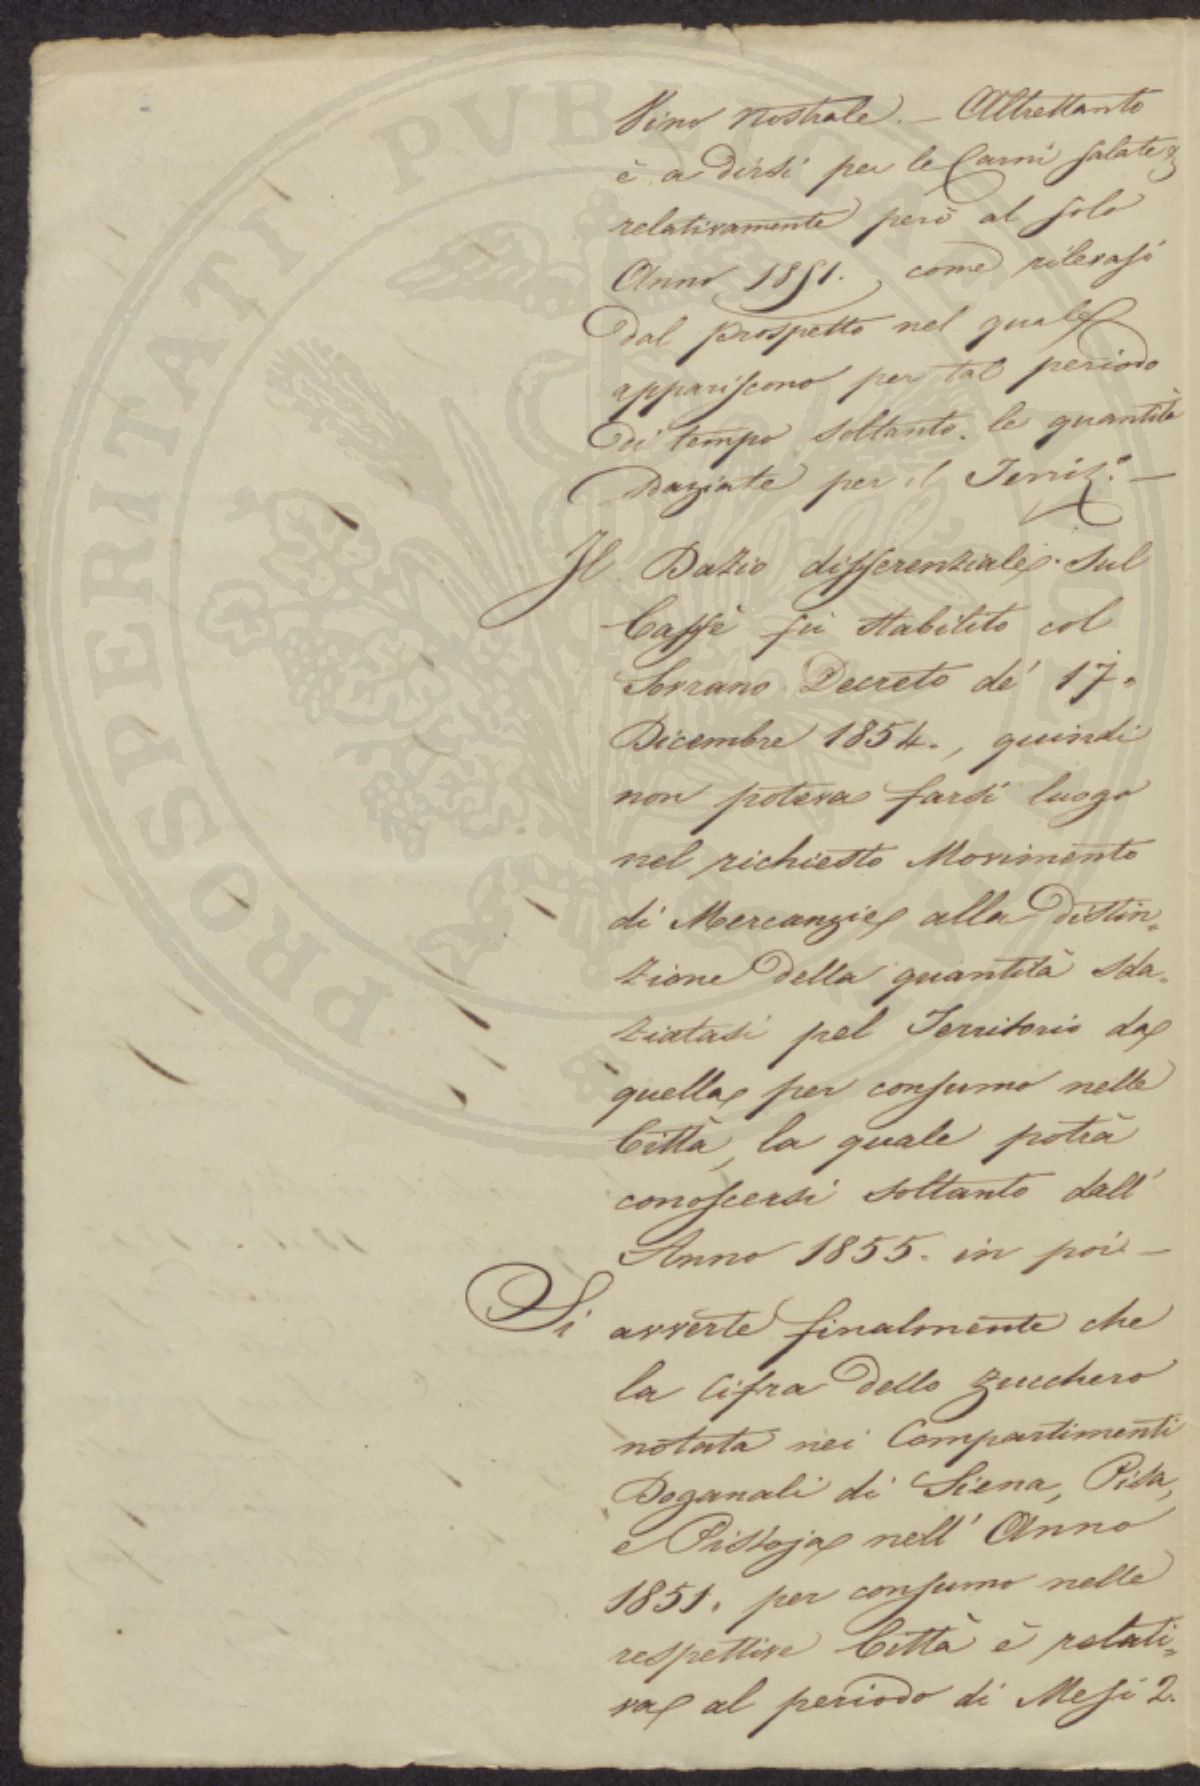 Vino nostrale. — Altrettanto
è a dirsi per le Carni salate
relativamente però al solo
Anno 1851. come rilevasi
dal prospetto nel quale
appariscono per tal periodo
di tempo soltanto le quantità
daziate per il Territ.o —
Il Dazio differenziale sul
Caffè fù stabilito col
Sovrano Decreto de' 17.
Dicembre 1854., quindi
non poteva farsi luogo
nel richiesto Movimento
di Mercanzie alla distin„
zione della quantità sda„
ziatasi pel Territorio da
quella per consumo nelle
Città, la quale potrà
conoscersi soltanto dall'
Anno 1855. in poi —
Si avverte finalmente che
la Cifra dello Zucchero
notata nei Compartimenti
Doganali di Siena, Pisa,
e Pistoja nell' Anno
1851. per consumo nelle
respettive Città è relati„
va al periodo di Mesi 2.
PROSPERITATI PUBLICAE AUGENDAE